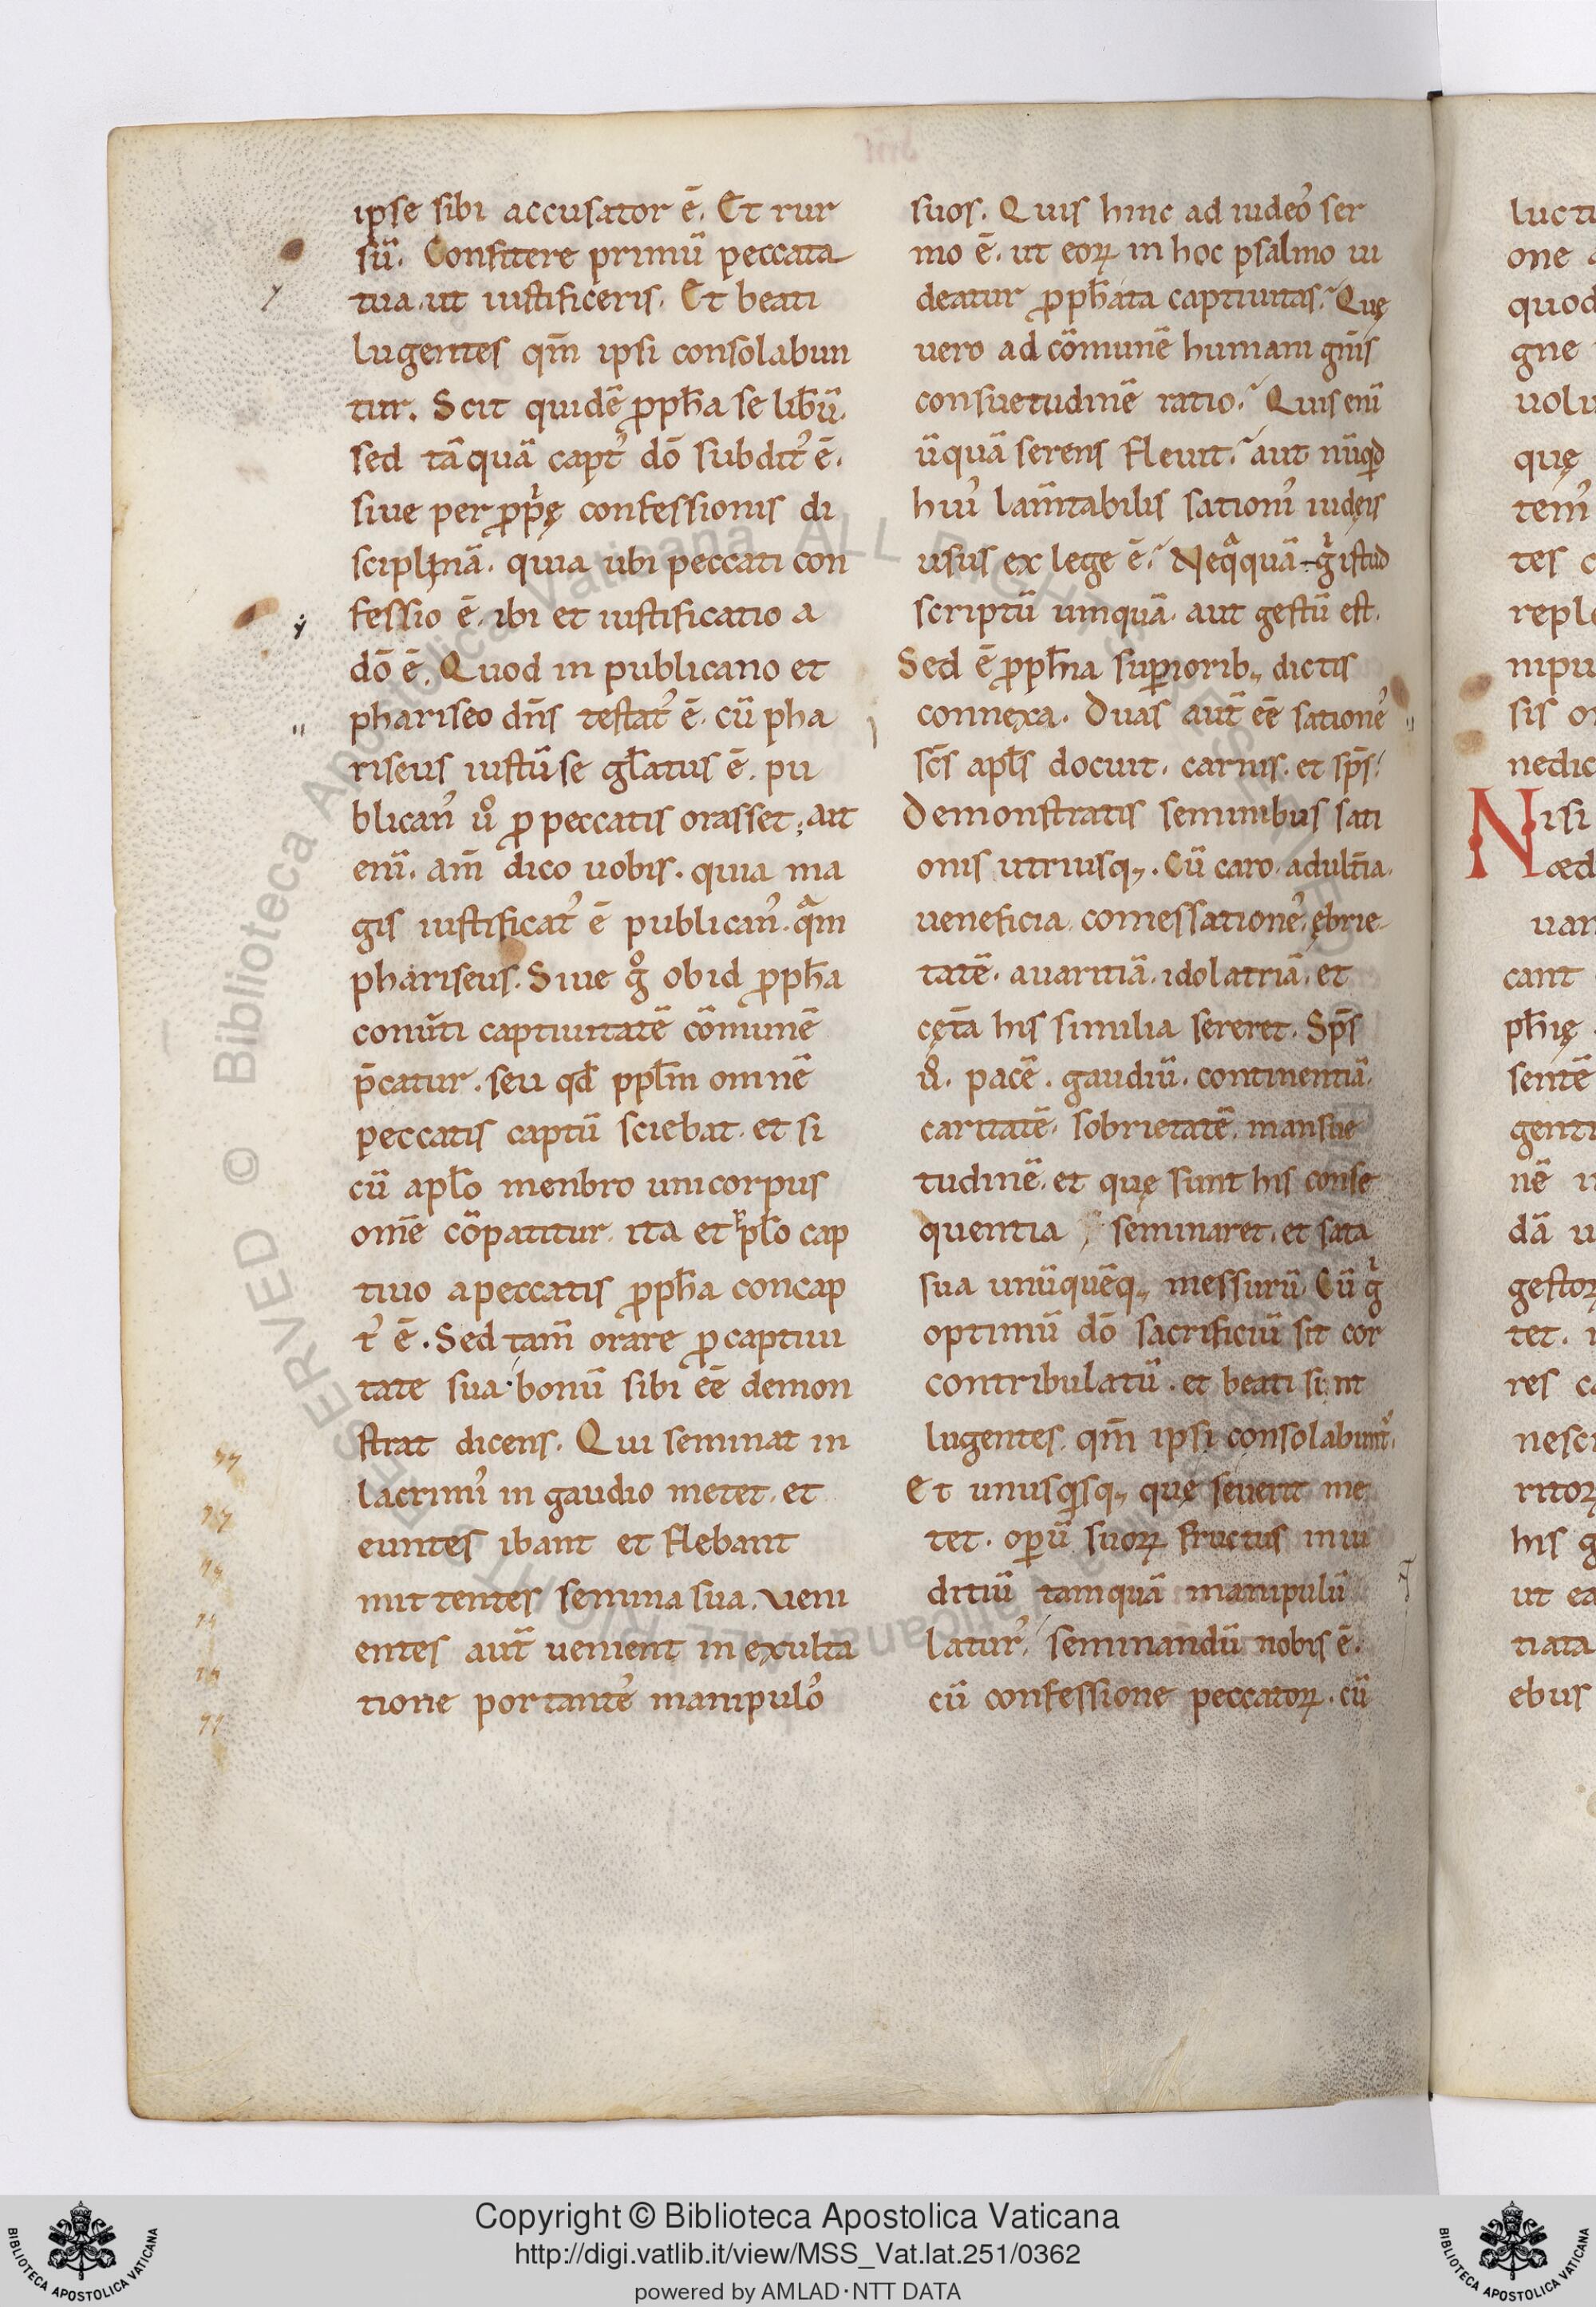 ipse sibi accusator ē. Et rur
sū. Confitere primū peccata
tua. ut iustificeris. Et beati
lugentes qm̄ ipsi consolabun
tur. Scit quidē ꝓph̄a se lib̄ū.
sed tā quā capt᾽ dō subdit᾽ ē.
siue per ꝓp̄ę confessionis di
sciplinā. quia ubi peccati con
fessio ē. ibi et iustificatio a
dō ē. Quod in publicano et
phariseo dn̄s testat᾽ ē. cū pha
riseus iustū se gl̄atus ē. pu
blican᾽ uͦ ꝓ peccatis orasset; ait
enī. am̄ dico uobis. quia ma
gis iustificat᾽ ē publican᾽. qᵃm
phariseus. Siue gͦ ob id ꝓph̄a
conūti captiuitatē cōmunē
p̄catur. seu qd̄ ppl̄m omnē
peccatis captū sciebat. et si
cū apl̄o menbro uni corpus
om̄e cōpatitur. ita et ppl̄o cap
tiuo a peccatis ꝓph̄a concap
t᾽ ē. Sed tam̄ orare ꝓ captiui
tate sua bonū sibi ēē demon
strat dicens. Qui seminat in
lacrimi᾽ in gaudio metet. et
euntes ibant et flebant
mittentes semina sua. ueni
entes aut̄ uenient in exulta
tione portante᾽ manipulo᾽
suos. Quis hinc ad iudeo᾽ ser
mo ē. ut eoꝝ in hoc psalmo ui
deatur ꝓph̄ata captiuitas. Quę
uero ad cōmunē humani gn̄is
consuetudinē ratio. Quis enī
ūquā serens fleuit. aut nūqd
hui᾽ lam̄tabilis sationi᾽ iudęis
usus ex lege ē. Neqᵃquā gͥ istud
scriptū umquā. aut gestū est.
Sed ē ꝓph̄ia suꝑiorib; dictis
connexa. Duas aut̄ ēē satione᾽
sc̄s apl̄s docuit. carnis. et sp̄s.
Demonstratis seminibus sati
onis utriusq;. Cū caro. adult̄ia.
ueneficia. comessatione᾽. ębrie
tatē. auaritiā. idolatriā. et
cęt̄a his similia sereret. Sp̄s
uͦ. pacē. gaudiū. continentiā.
caritatē. sobrietatē. mansue
tudinē. et quę sunt his conse
quentia seminaret. et sata
sua unūquēq; messurū. Cū gͥ
optimū dō sacrificiū sit cor
contribulatū. et beati sint
lugentes. qm̄ ipsi consolabunt᾽.
Et unusqͥsq; quę seuerit me
tet. oꝑū suoꝝ fructus in iu
ditiū tamquā manipulū
latur᾽. seminandū nobis ē.
cū confessione peccatoꝝ. cū
lucti
one a
quod
gne
uolu
quę
tem᾽
tes c
reple
nipu
sis o
nedic
Nisi
æd
uan
cant
ph̄ię
sentē
genti
nē
dā u
gestoꝝ
tet.
res ca
nesci
ritoꝝ
his g
ut ea
tiata
ebus
© Biblioteca Apostolica Vaticana ALL RIGHTS RESERVED
Copyright © Biblioteca Apostolica Vaticana
http://digi.vatlib.it/view/MSS_Vat.lat.251/0362
powered by AMLAD·NTT DATA
BIBLIOTECA APOSTOLICA VATICANA
BIBLIOTECA APOSTOLICA VATICANA